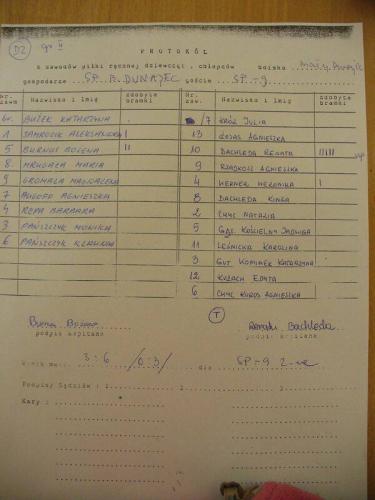 D2 gr II
PROTOKÓŁ
z zawodów piłki ręcznej dziewcząt, chłopców boisko Mały Dunajec
gospodarze SP. B. DUNAJEC goście SP-9
Nr. zaw. Nazwisko i Imię zdobyte bramki Nr. zaw. Nazwisko i Imię zdobyte bramki
BUŹEK KATARZYNA /7 KRÓL JULIA
1 ALEKSANDRA I 13 AGNIESZKA
5 BURNUS BOŻENA II 10 DACHLEDA RENATA IIIII
8 MROGAŁA MARIA 9 RZADKOSZ AGNIESZKA
9 GROMALA MAGDALENA 4 WERNER WERONIKA I
7 AGNIESZKA 8 DACHLEDA KINGA
4 RZPA BARBARA 2 CHYC NATALIA
3 PAŃSZCZYK MONIKA 5 GĄS. KOŚCIELNY JADWIGA
6 PAŃSZCZYK KLAUDIA 11 LEŚNICKA KAROLINA
3 GUT KATARZYNA
12 EDYTA
6 CHYC AGNIESZKA
T
Renata Bachleda
podpis kapitana podpis kapitana
Wynik me 3:6 /0:3/ dla SP-9 Z-ne
Podpisy Sędziów : 1. 2.
Kary :